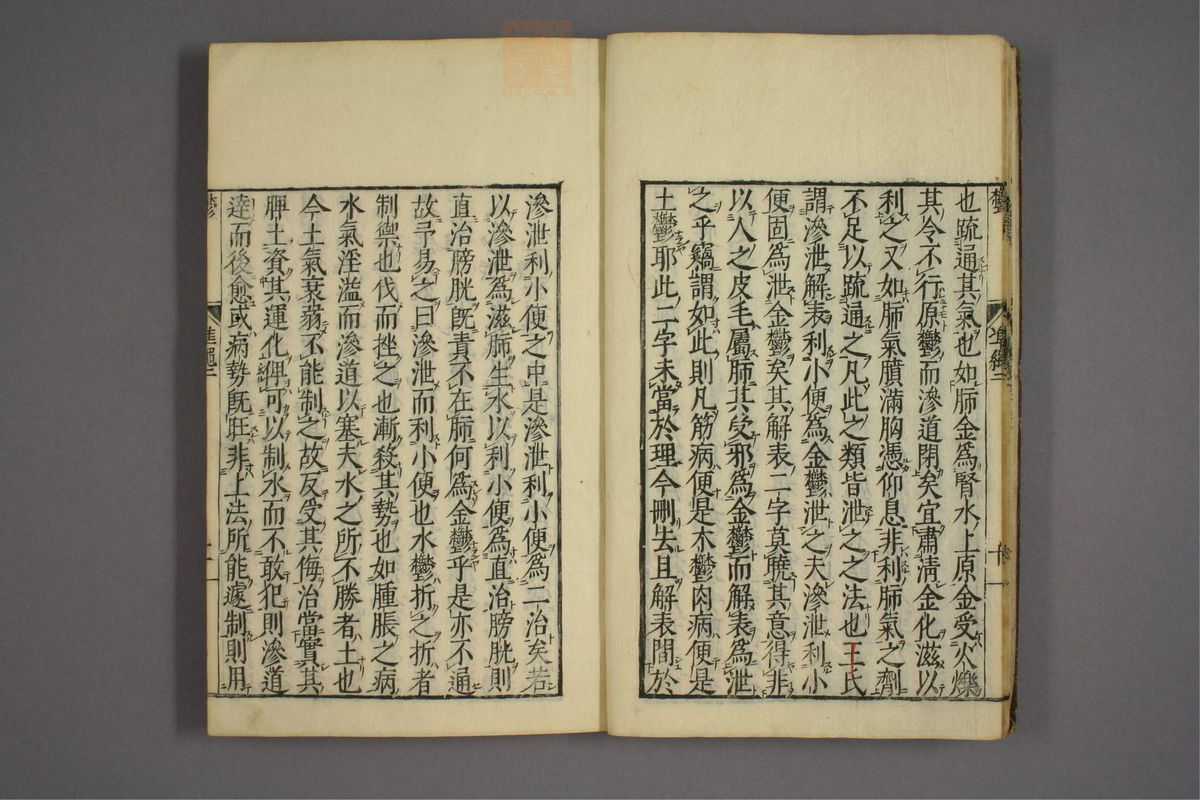 也疏通其氣也如肺金為腎水上原金受火爍
其令不行原鬱而滲道閉矣宜肅清金化滋以
利之又如肺氣膹滿胸憑仰息非利肺氣之劑
不足以疏通之凡此之類皆泄之之法也王氏
謂滲泄解表利小便為金鬱泄之夫滲泄利小
便固為泄金鬱矣其解表二字莫曉其意得非
以人之皮毛屬肺其受邪為金鬱而解表為泄
之乎竊謂如此則凡筋病便是木鬱肉病便是
土鬱耶此二字未當於理今刪去且解表間於
滲泄利小便之中是滲泄利小便為二治矣若
以滲泄為滋肺生水以利小便為直治膀胱則
直治膀胱既責不在肺何為金鬱乎是亦不通
故予易之曰滲泄而利小便也水鬱折之折者
制禦也伐而挫之也漸殺其勢也如腫脹之病
水氣淫溢而滲道以塞夫水之所不勝者土也
今土氣衰弱不能制之故反受其侮治當實其
脾土資其運化俾可以制水而不敢犯則滲道
達而後愈或病勢既旺非上法所能遽制則用